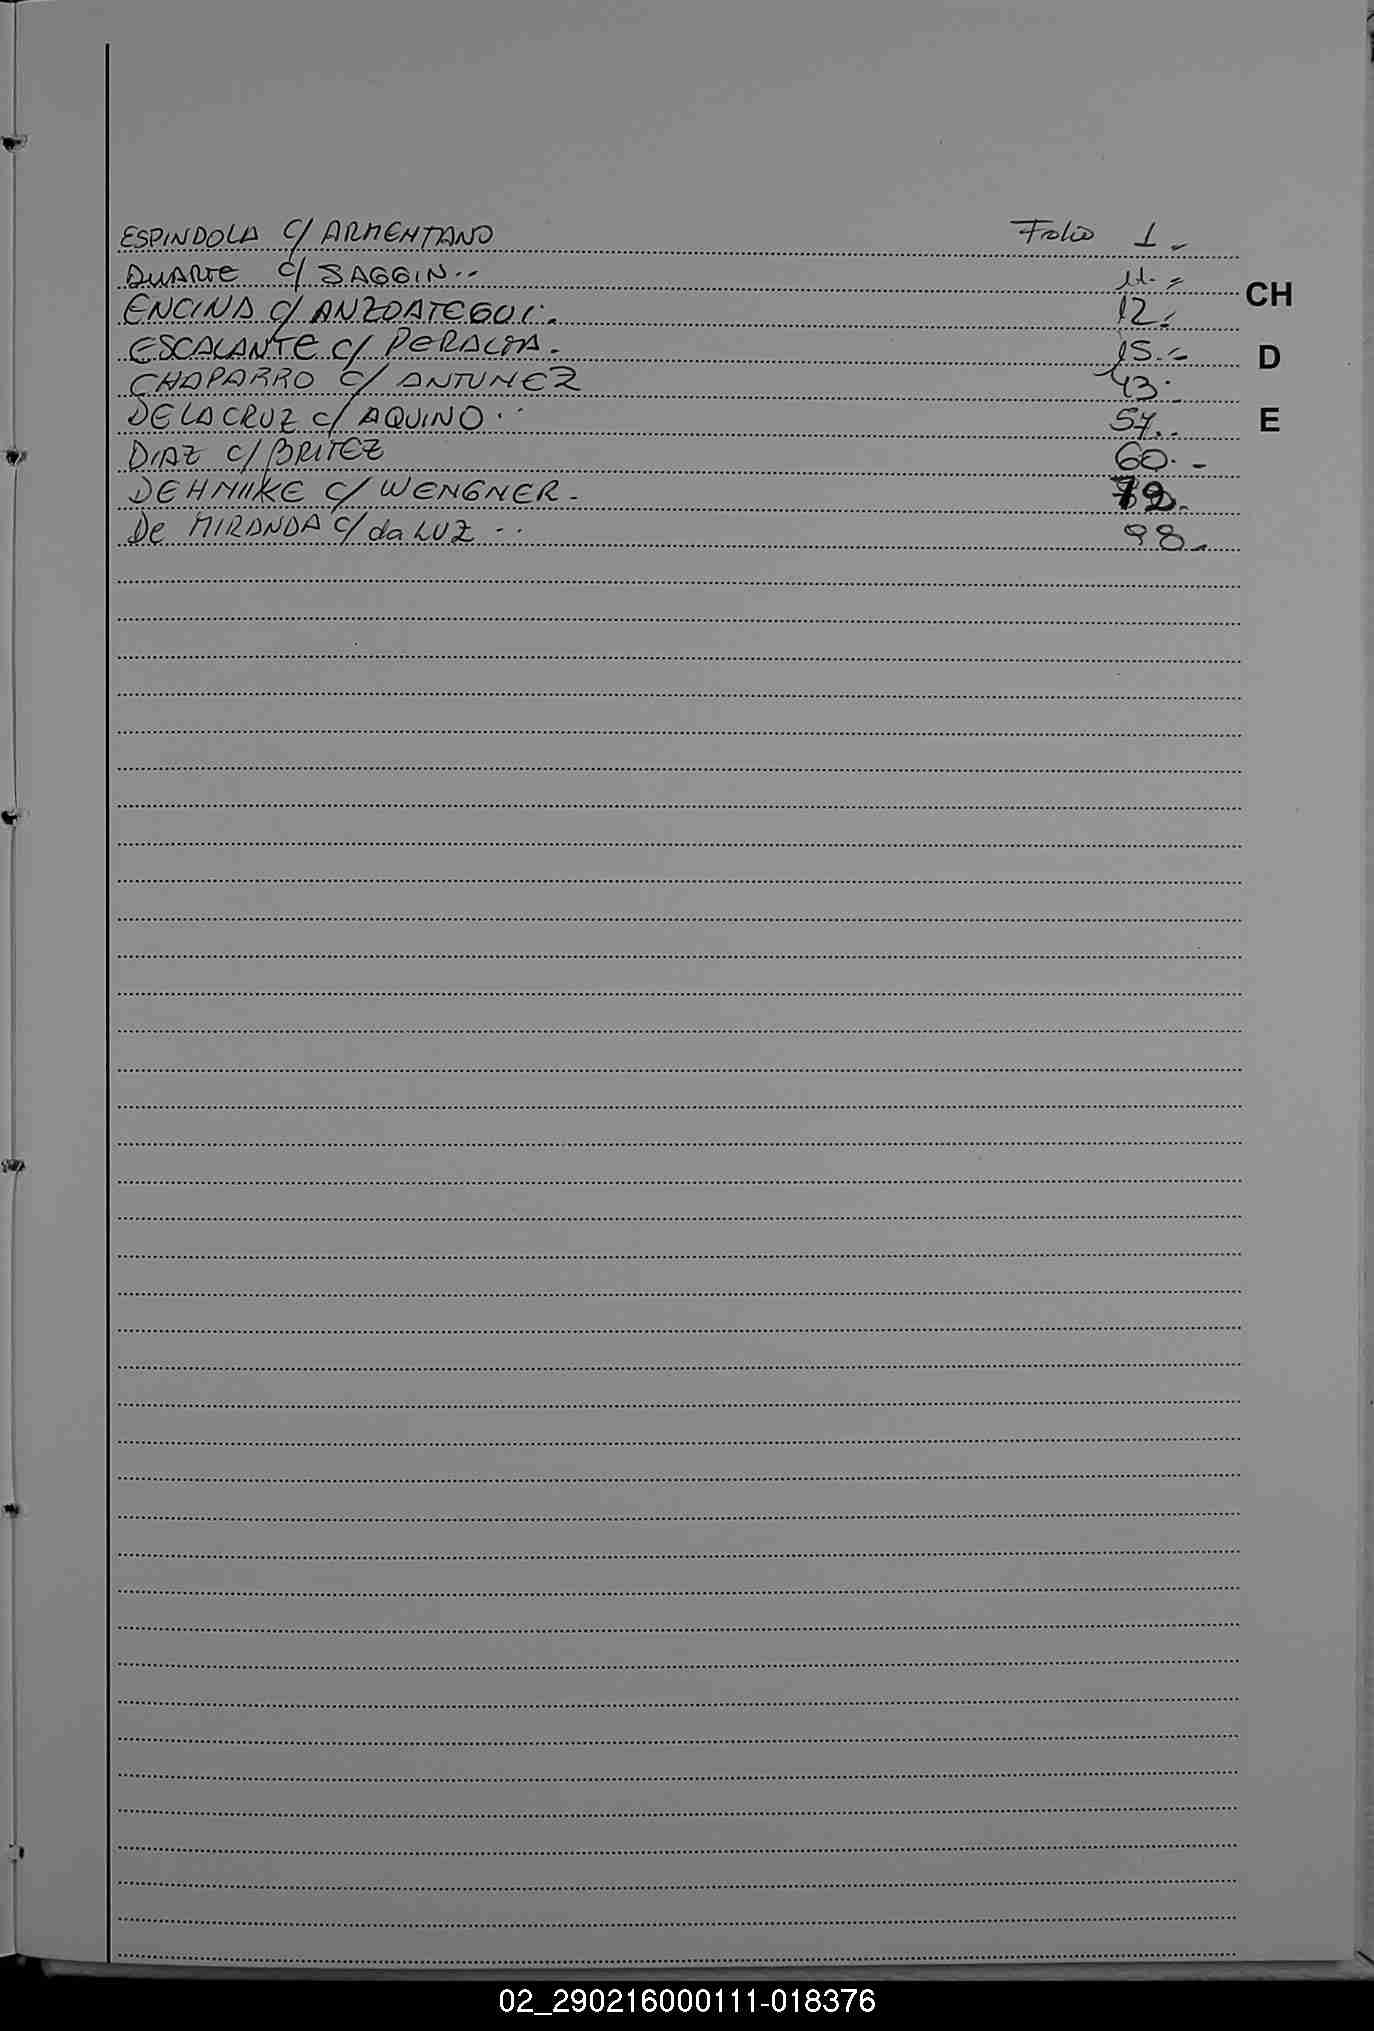 ESPINDOLA C/ ARMENTANO Folio 1.-
DUARTE C/ SAGGIN.-- 11.-
ENCINA C/ ANZOATEGUI.. 12.-
ESCALANTE C/ PERALTA.- 15.-
CHAPARRO C/ ANTUNEZ 43.-
DE LA CRUZ C/ AQUINO.-- 57.-
DIAZ C/ BRITEZ 60.-
DEHMIIKE C/ WENGNER.- 72.
De MIRANDA C/ da LUZ -.. 98.-
CH
D
E
02_290216000111-018376